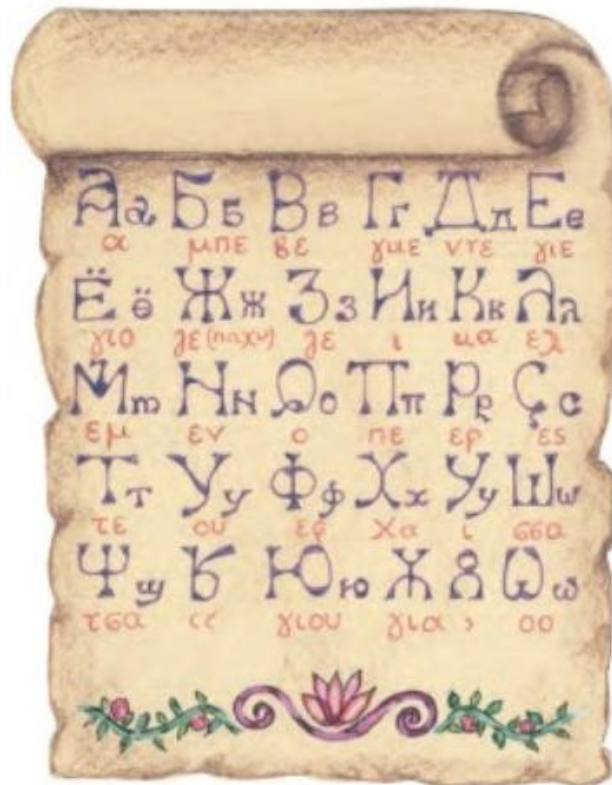 Аа Бб Вв Гг Дд Ее
α μπε βε γκε ντε γιε
Ёё Жж Зз Ии Кк Лл
γιο ζε(παχύ) ζε ι κα ελ
Мт Нн Оо Пп Рр Çс
εμ εν ο πε ερ ες
Тт Уу Фф Хх Уу Шш
τε ου εφ χα ι σσα
Ѱщ Ѣ Юю Ж 8 Ѡѡ
τσα ςς γιου για › οο